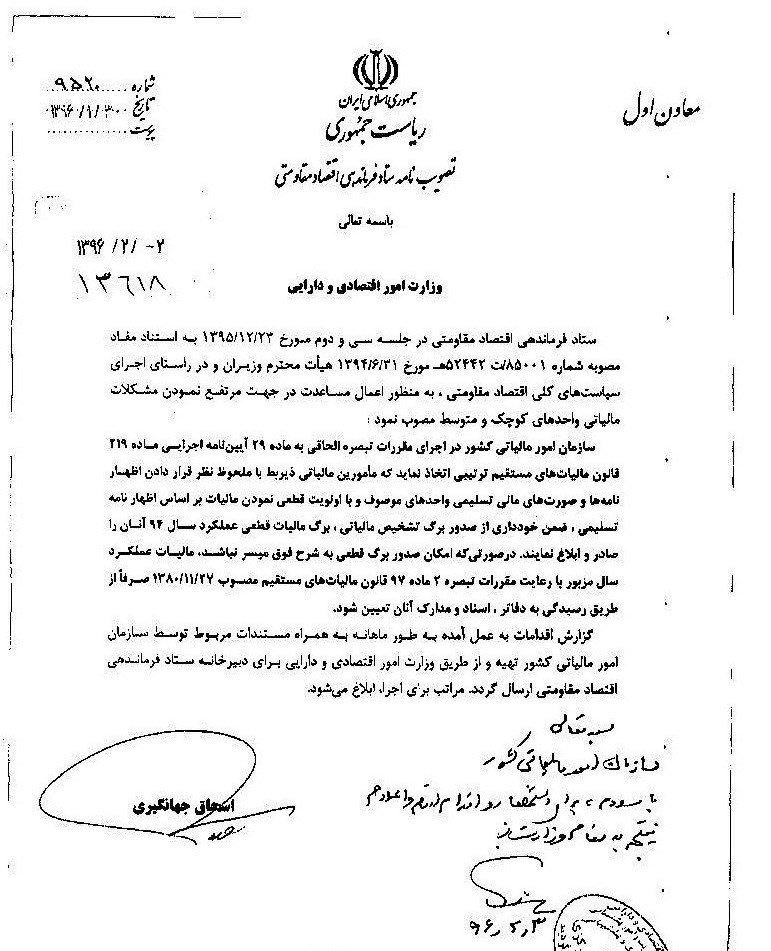 جمهوری اسلامی ایران
ریاست جمهوری
معاون اول
شماره ۹۵۲۰
تاریخ ۱۳۹۶/۱/۳۰
پیوست
تصویب نامه ستاد فرماندهی اقتصاد مقاومتی
باسمه تعالی
۱۳۹۶ /۲/ ۰۲
۱۳۶۱۸
وزارت امور اقتصادی و دارایی
ستاد فرماندهی اقتصاد مقاومتی در جلسه سی و دوم مورخ ۱۳۹۵/۱۲/۲۳ به استناد مفاد
مصوبه شماره ۸۵۰۰۱/ت۵۲۴۴۲هـ مورخ ۱۳۹۴/۶/۳۱ هیأت محترم وزیران و در راستای اجرای
سیاست‌های کلی اقتصاد مقاومتی ، به منظور اعمال مساعدت در جهت مرتفع نمودن مشکلات
مالیاتی واحدهای کوچک و متوسط مصوب نمود :
سازمان امور مالیاتی کشور در اجرای مقررات تبصره الحاقی به ماده ۲۹ آیین‌نامه اجرایی ماده ۲۱۹
قانون مالیات‌های مستقیم ترتیبی اتخاذ نماید که مأمورین مالیاتی ذیربط با ملحوظ نظر قرار دادن اظهار
نامه‌ها و صورت‌های مالی تسلیمی واحدهای موصوف و با اولویت قطعی نمودن مالیات بر اساس اظهار نامه
تسلیمی ، ضمن خودداری از صدور برگ تشخیص مالیاتی ، برگ مالیات قطعی عملکرد سال ۹۴ آنان را
صادر و ابلاغ نمایند. درصورتی‌که امکان صدور برگ قطعی به شرح فوق میسر نباشد، مالیات عملکرد
سال مزبور با رعایت مقررات تبصره ۲ ماده ۹۷ قانون مالیات‌های مستقیم مصوب ۱۳۸۰/۱۱/۲۷ صرفاً از
طریق رسیدگی به دفاتر ، اسناد و مدارک آنان تعیین شود.
گزارش اقدامات به عمل آمده به طور ماهانه به همراه مستندات مربوط توسط سازمان
امور مالیاتی کشور تهیه و از طریق وزارت امور اقتصادی و دارایی برای دبیرخانه ستاد فرماندهی
اقتصاد مقاومتی ارسال گردد. مراتب برای اجرا، ابلاغ می‌شود.
اسحاق جهانگیری
بسمه تعالی
سازمان امور مالیاتی کشور
با سلام ، برای استحضار و اقدام لازم و اعلام
نتیجه به مقام وزارت
۹۶/۲/۳